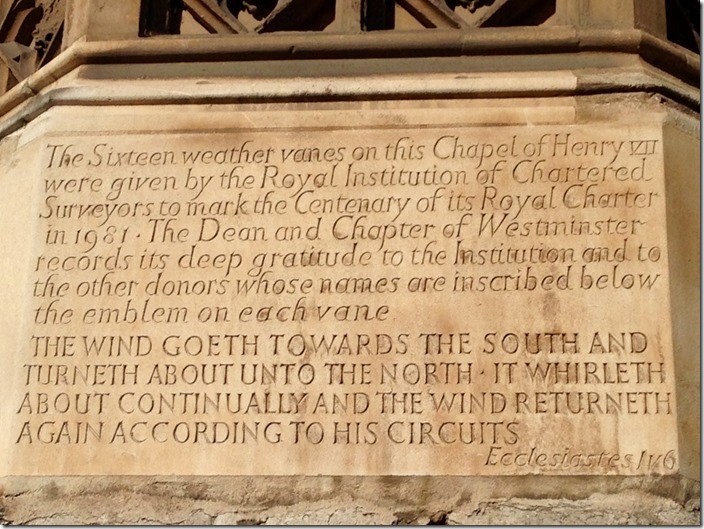 The Sixteen weather vanes on this Chapel of Henry VII
were given by the Royal Institution of Chartered
Surveyors to mark the Centenary of its Royal Charter
in 1981 · The Dean and Chapter of Westminster
records its deep gratitude to the Institution and to
the other donors whose names are inscribed below
the emblem on each vane
THE WIND GOETH TOWARDS THE SOUTH AND
TURNETH ABOUT UNTO THE NORTH · IT WHIRLETH
ABOUT CONTINUALLY AND THE WIND RETURNETH
AGAIN ACCORDING TO HIS CIRCUITS
Ecclesiastes I v6